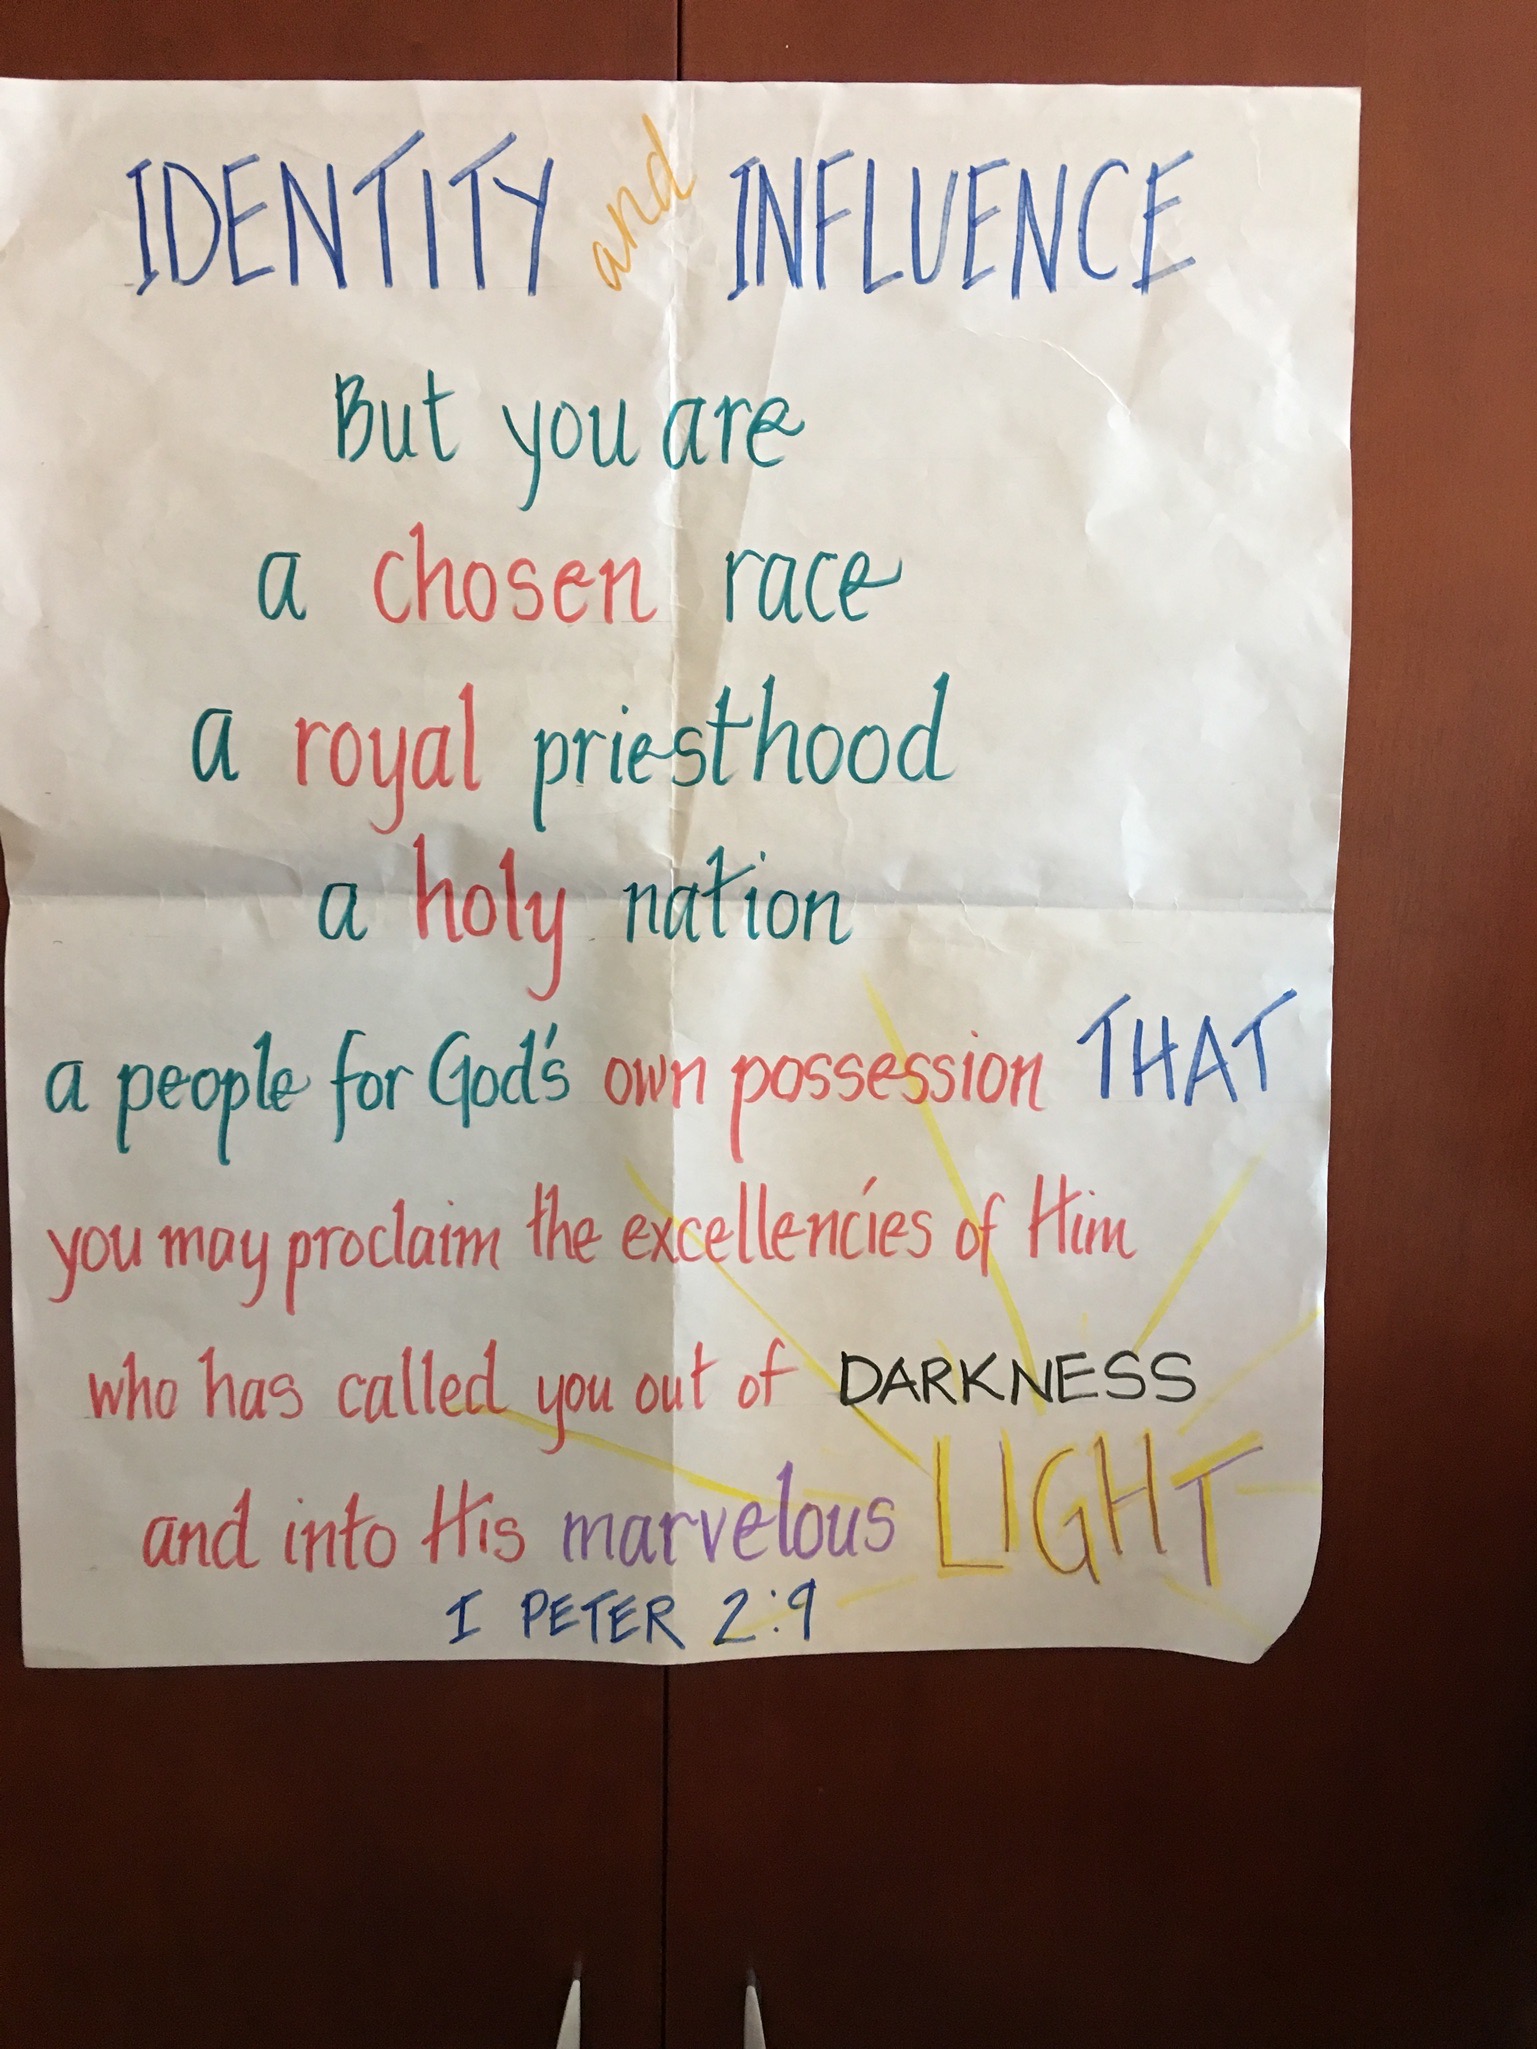 IDENTITY and INFLUENCE
But you are
a chosen race
a royal priesthood
a holy nation
a people for God's own possession THAT
you may proclaim the excellencies of Him
who has called you out of DARKNESS
and into His marvelous LIGHT
I PETER 2:9